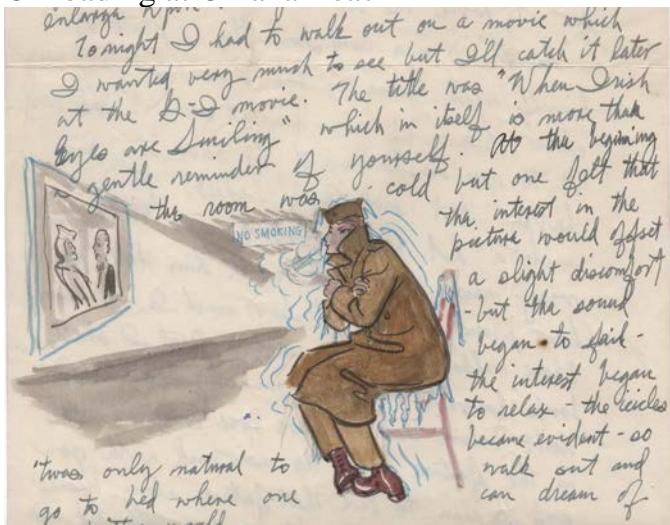 enlarge upon
Tonight I had to walk out on a movie which
I wanted very much to see but I'll catch it later
at the movie. The title was "When Irish
Eyes are Smiling" which in itself is more than
a gentle reminder of yourself. At the begining
the room was cold but one felt that
the interest in the
picture would offset
a slight discomfort
- but the sound
began to fail -
the interest began
to relax - the icicles
became evident - so
walk out and
can dream of
NO SMOKING
'twas only natural to
go to bed where one